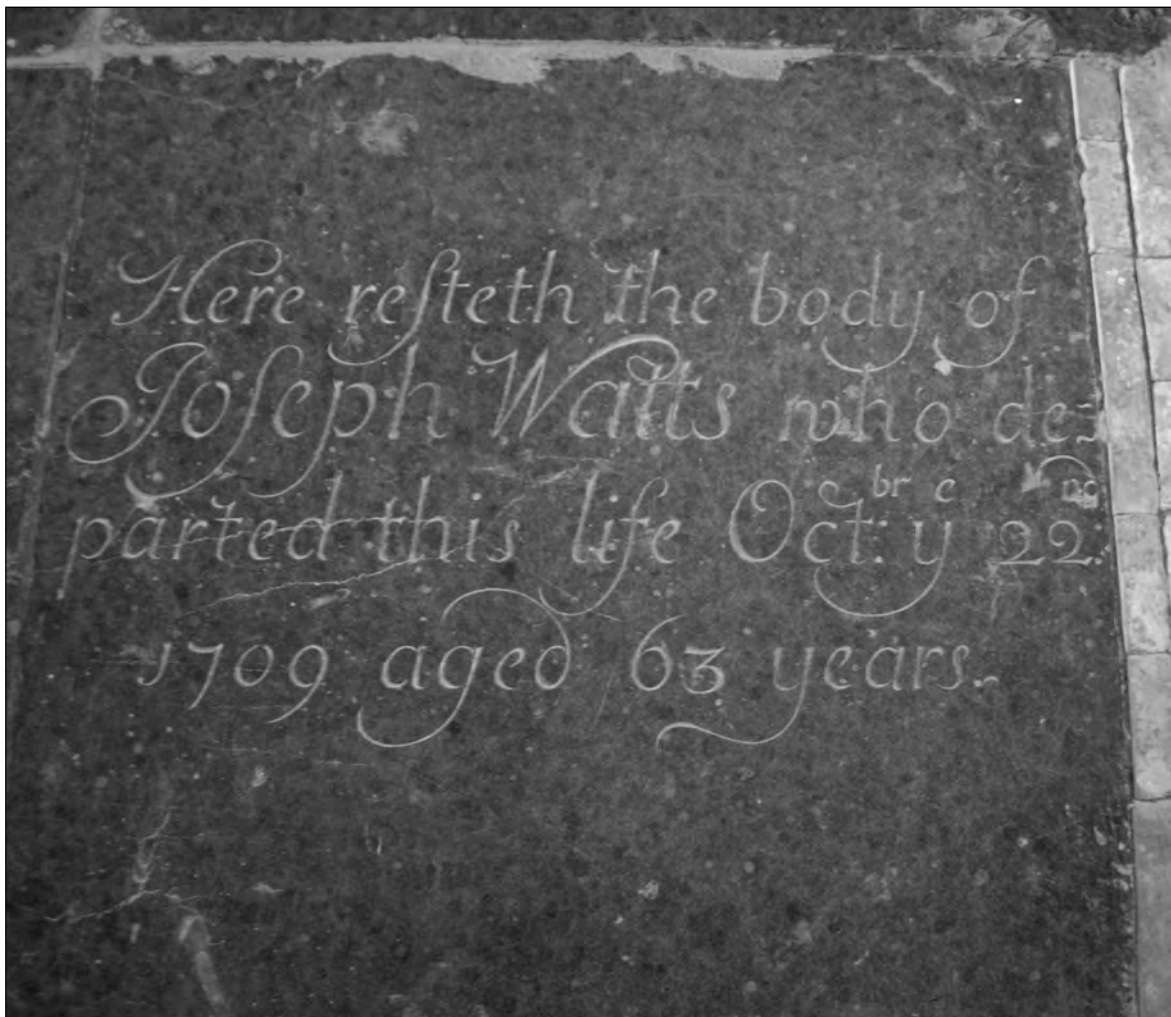 Here reſteth the body of
Joſeph Watts who de=
parted this life Oct:br ye 22nd
1709 aged 63 years.